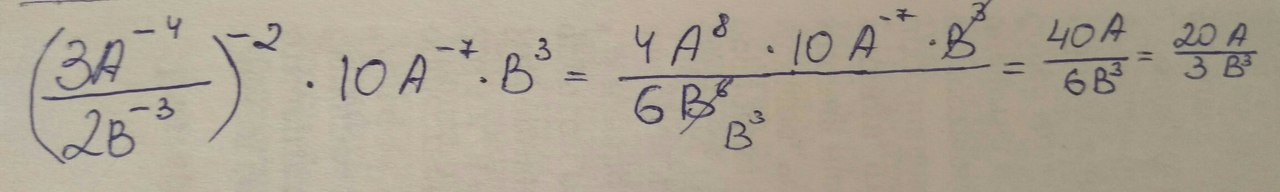 (3A⁻⁴/2B⁻³)⁻² · 10A⁻⁷ · B³ = 4A⁸ · 10A⁻⁷ · B³/6B⁶ B³ = 40A/6B³ = 20A/3B³